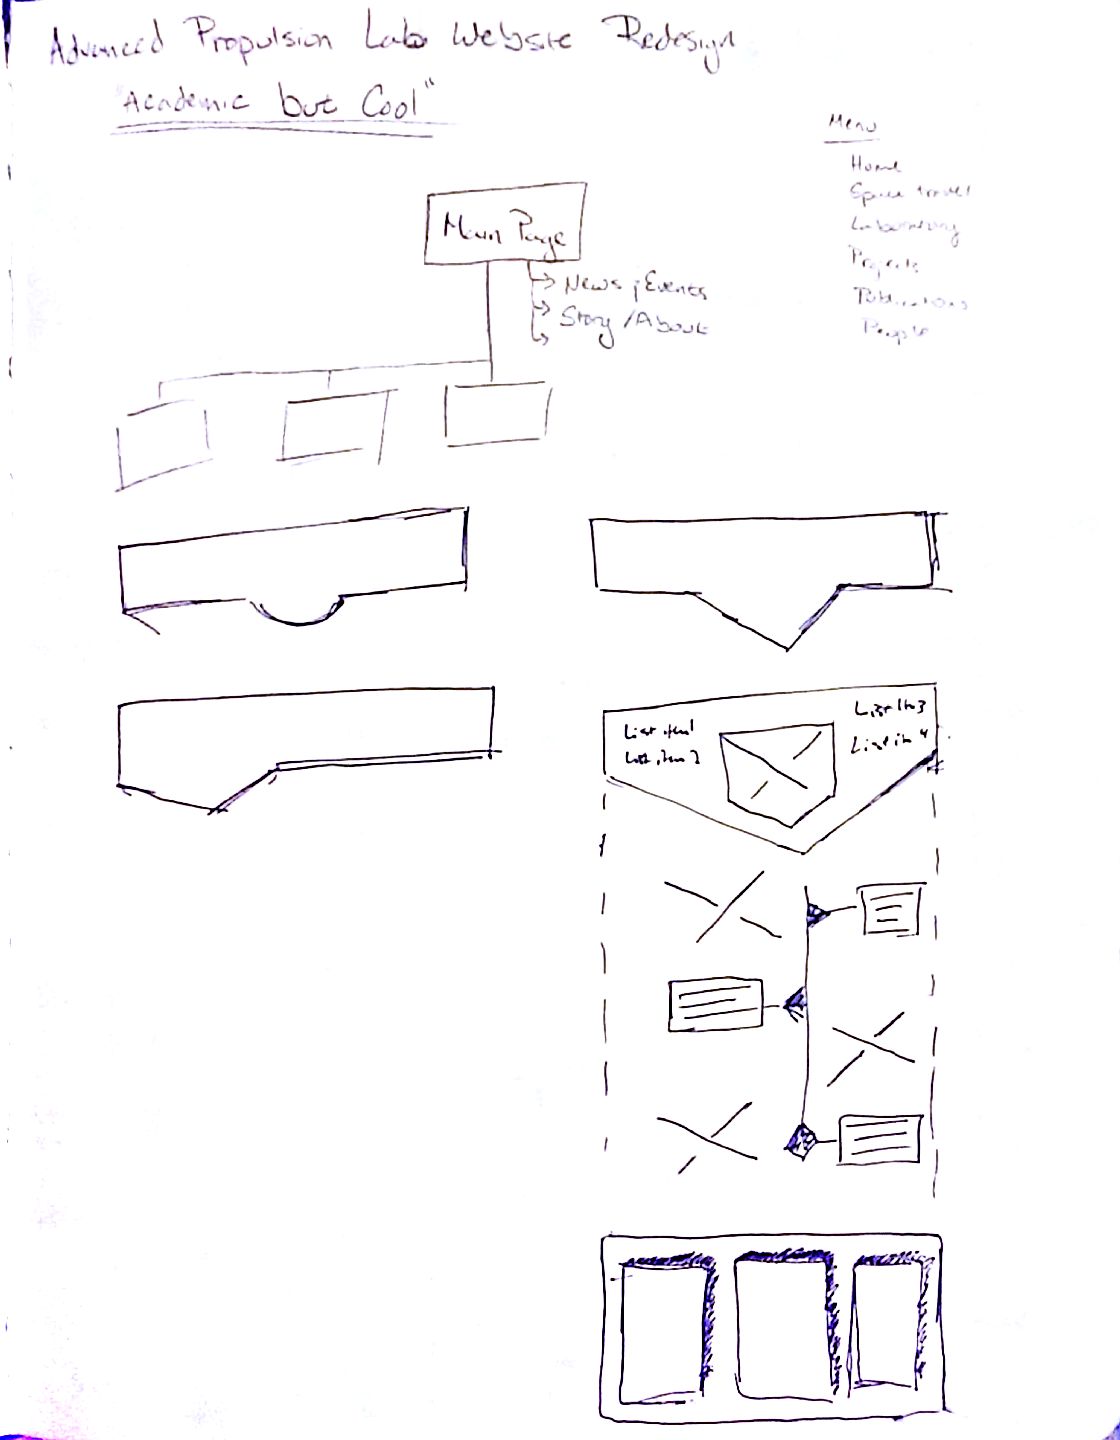 Advanced Propulsion Labs Website Redesign
"Academic but Cool"
Menu
Home
Space travel
Laboratory
Projects
Publications
People
Main Page
News ; Events
Story / About
List item 1
List item 2
List it 3
List it 4